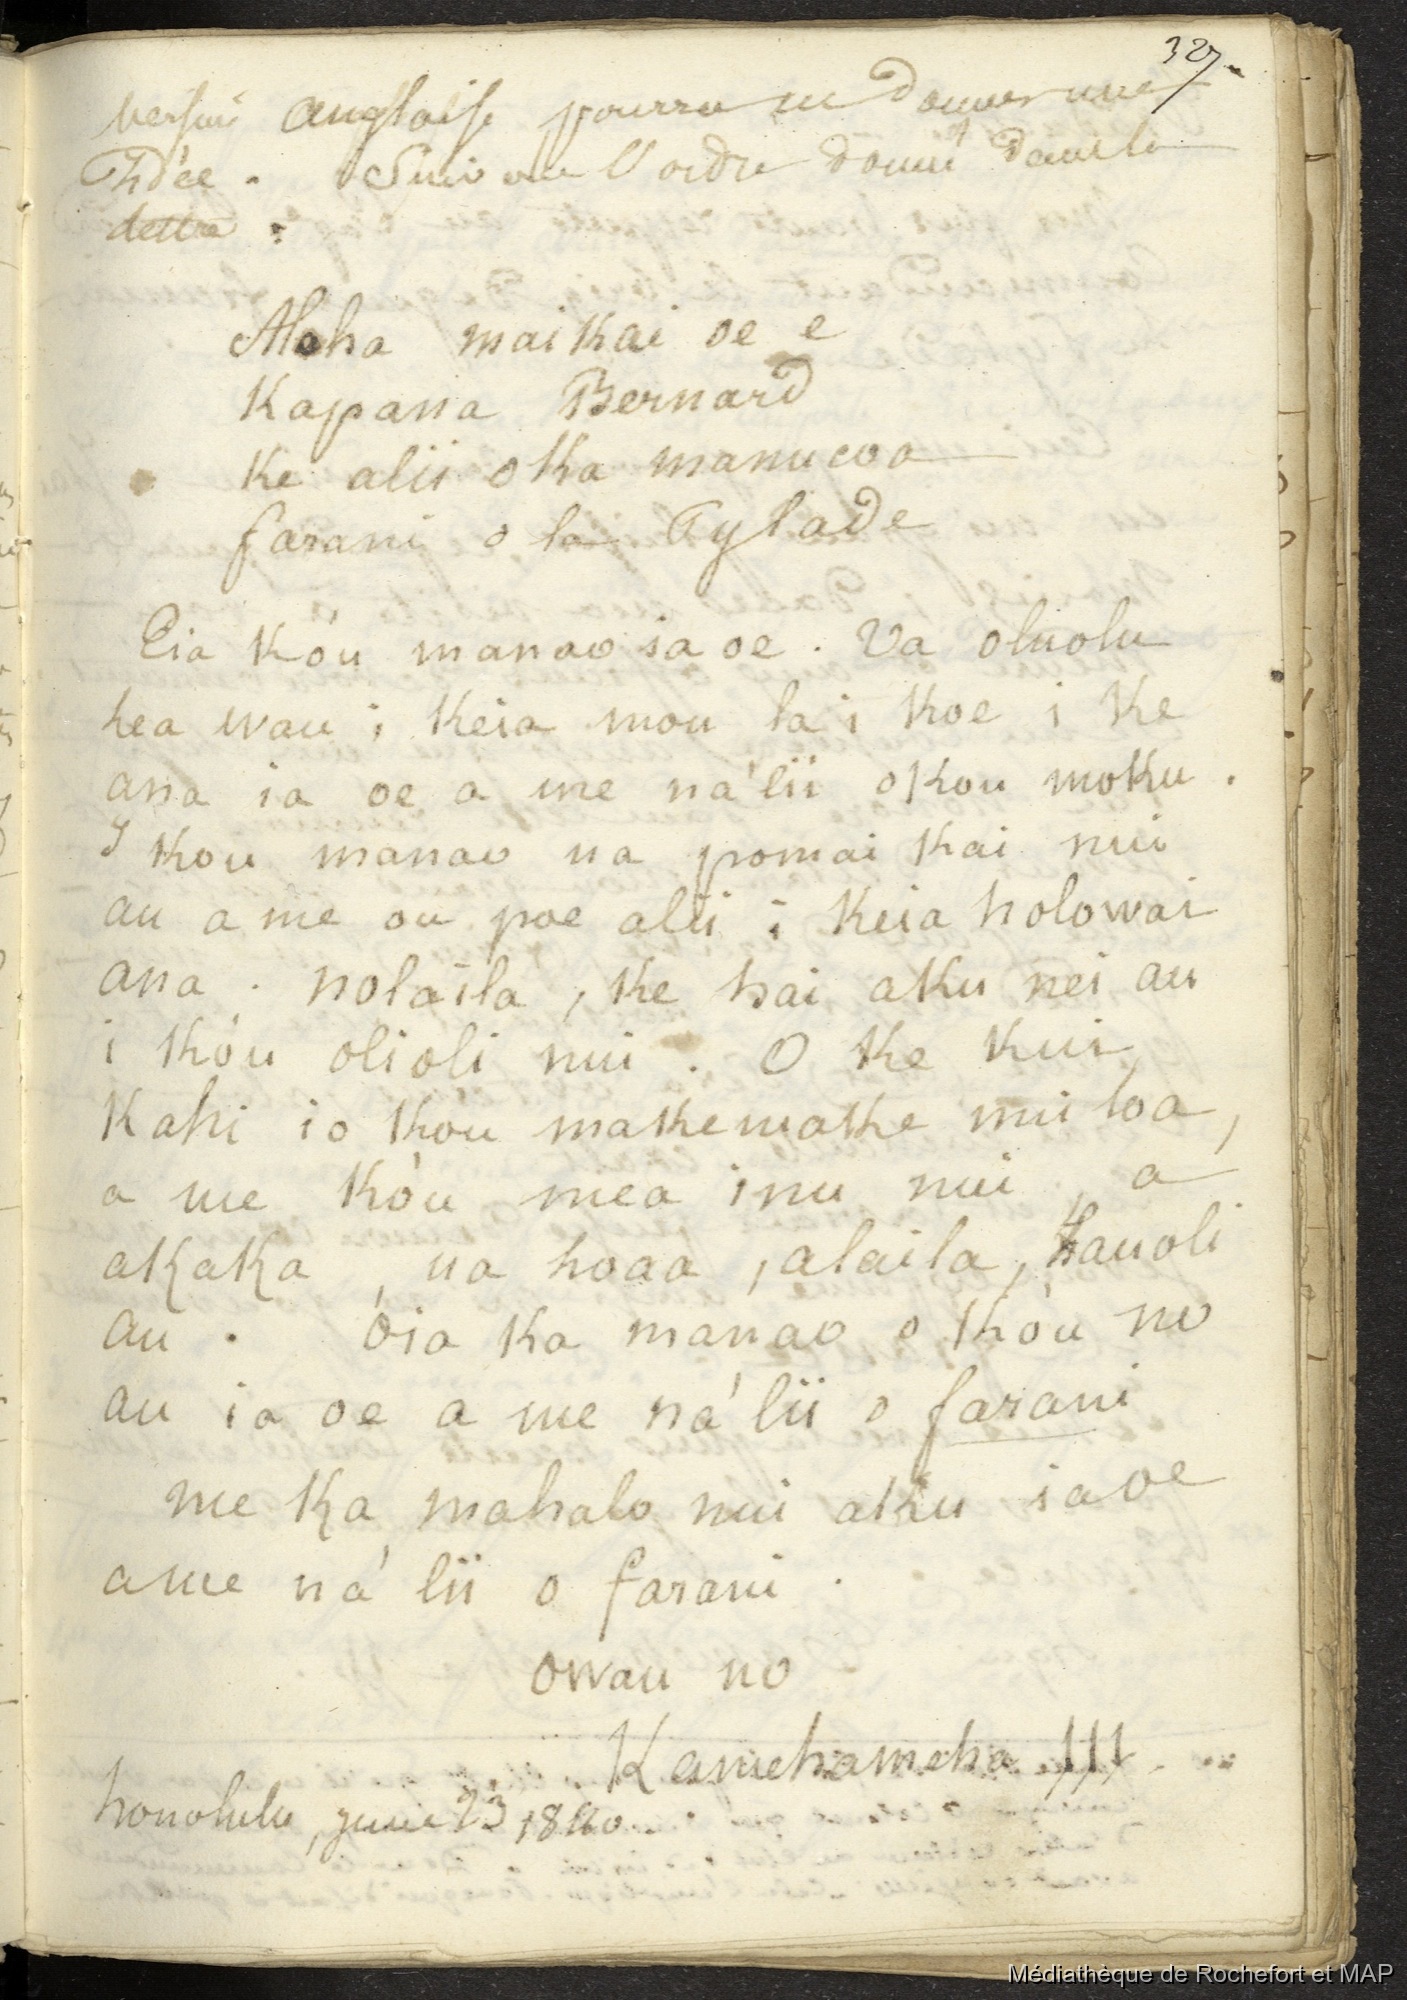 327.
version anglaise pourra en donner une
Idée. Suivre l'ordre donné dans la
dettre.
Aloha maikai oe e
Kapana Bernard
Ke alii oka manucoa
farani o la Pylade
Eia Kóu manao ia oe. Ua oluolu
hea wau i Keia mou la i Koe i Ke
ana ia oe a me ná'lii okou moku.
I Kou manao ua pomai Kai nui
au a me ou poe alii i Keia holowai
ana. nolaila, Ke hai aku nei au
i Kóu olioli nui. O Ke Kui
Kahi io Kóu makemake nui loa,
a me Kóu mea inu nui, a
akaka, ua hoaa, alaila, hauoli
au. Oia Ka manao o Kóu no
au ia oe a me ná'lii o farani
me Ka mahalo nui aku ia oe
ame ná'lii o farani.
owau no
Kamehameha III.
honolulu, june 23 1840
Médiathèque de Rochefort et MAP